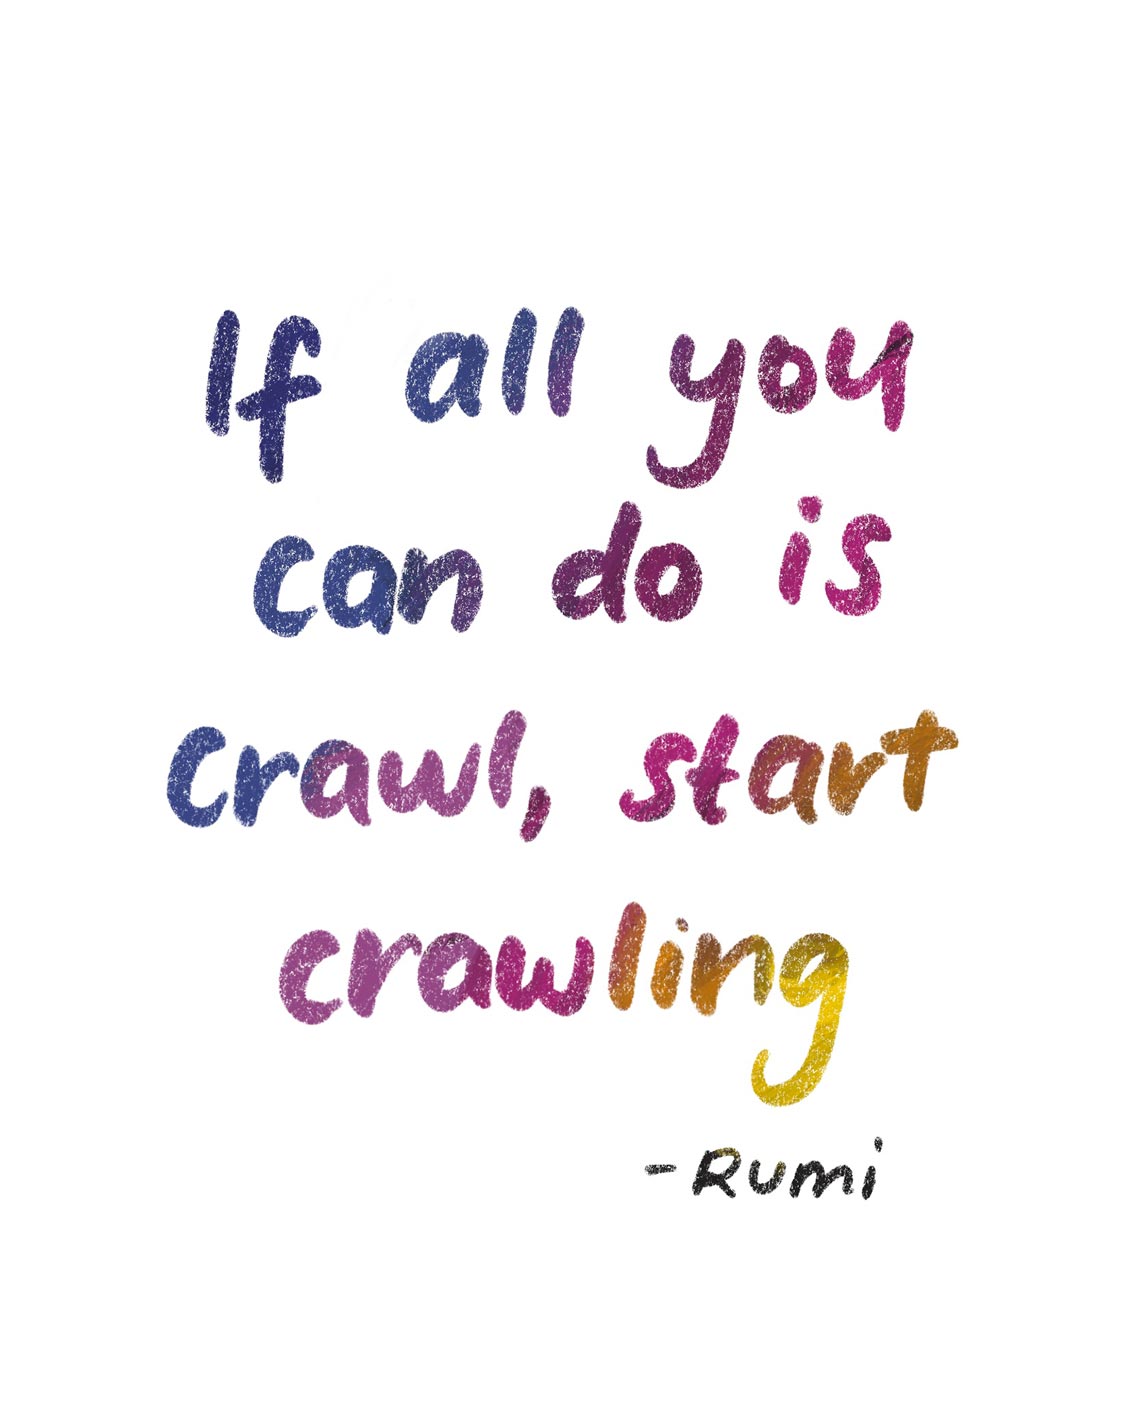 If all you
can do is
crawl, start
crawling
-Rumi